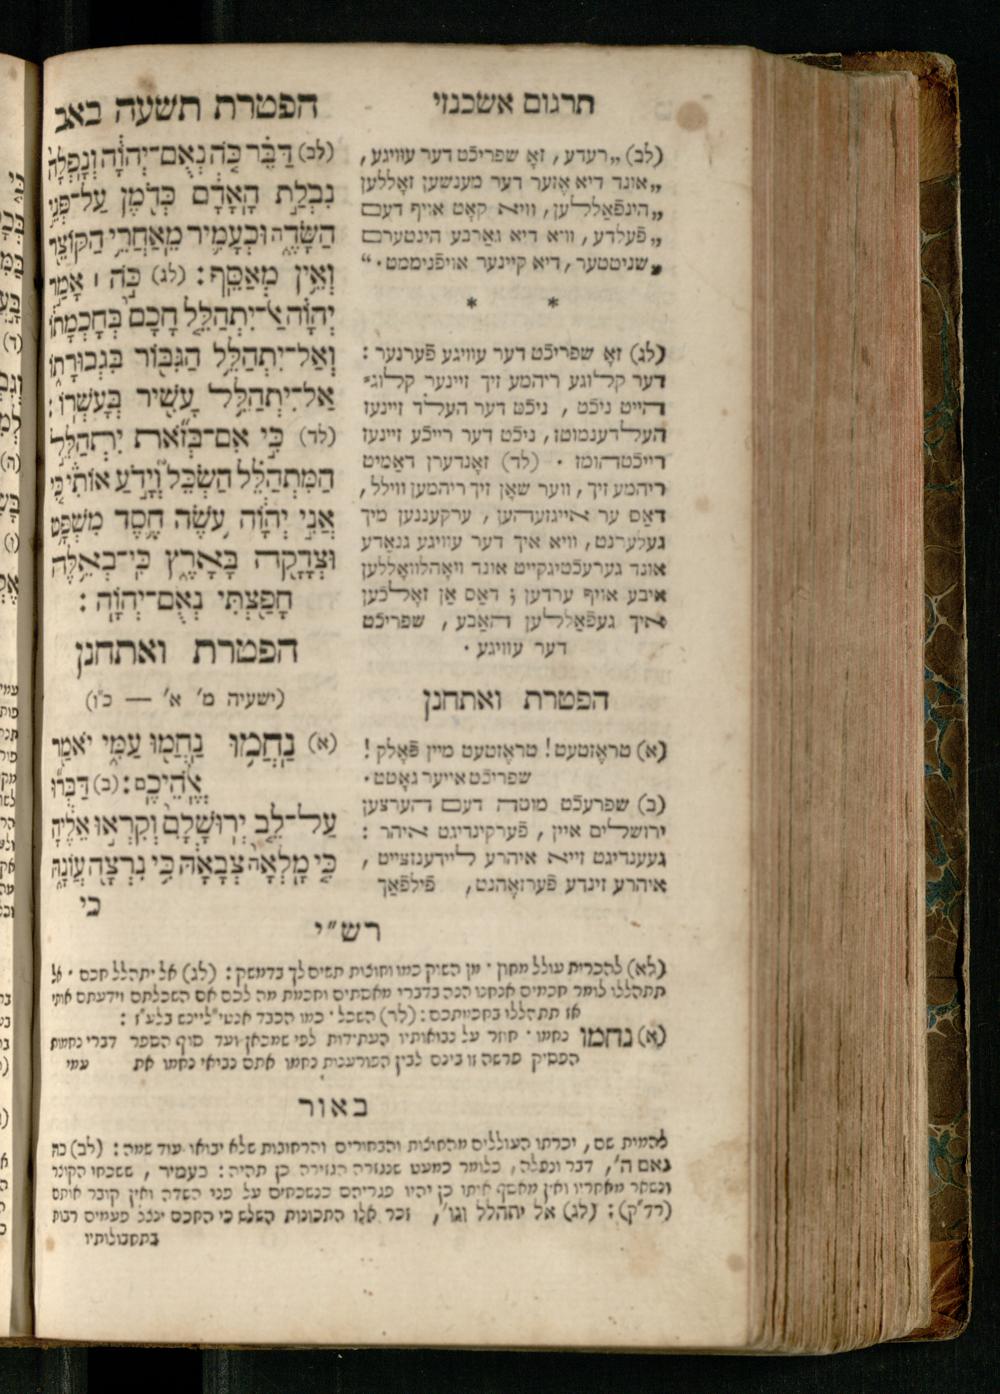 תרגום אשכנזי
(לב) „רעדע, זאָ שפריכֿט דער עוויגע,
„אונד דיא אֶזער דער מענשען זאָללען
„הינפֿאַללען, וויא קאָט אויף דעם
„פֿעלדע, וויא דיא גאַרבע הינטערם
„שניטטער, דיא קיינער אויפֿניממט.“
* *
(לג) זאָ שפריכֿט דער עוויגע פֿערנער:
דער קלוגע ריהמע זיך זיינער קלוג־
הייט ניכֿט, ניכֿט דער העלד זיינעז
העלדענמוטז, ניכֿט דער רייכֿע זיינעז
רייכֿטהומז. (לד) זאָנדערן דאַמיט
ריהמע זיך, ווער שאָן זיך ריהמען ווילל,
דאַס ער אייגזעהען, ערקעננען מיך
געלערנט, וויא איך דער עוויגע גנאַדע
אונד גערעכֿטיגקייט אונד וואָהלוואָללען
איבע אויף ערדען; דאַס אַן זאָלכֿען
איך געפֿאַללען האַבע, שפריכֿט
דער עוויגע.
הפטרת ואתחנן
(א) טראָזטעט! טראָזטעט מיין פֿאָלק!
שפריכֿט אייער גאָטט.
(ב) שפרעכֿט מוטה דעם הערצען
ירושלים איין, פֿערקינדיגט איהר:
געענדיגט זייא איהרע ליידענזצייט,
איהרע זינדע פֿערזאָהנט, פֿילפֿאַך
הפטרת תשעה באב
(לב) דַּבֵּר כֹּה נְאֻם־יְהוָֹה וְנָפְלָה
נִבְלַת הָאָדָם כְּדֹמֶן עַל־פְּנֵי
הַשָּׂדֶה וּכְעָמִיר מֵאַחֲרֵי הַקּוֹצֵר
וְאֵין מְאַסֵּף: (לג) כֹּה ׀ אָמַר
יְהוָֹה אַל־יִתְהַלֵּל חָכָם בְּחָכְמָתוֹ
וְאַל־יִתְהַלֵּל הַגִּבּוֹר בִּגְבוּרָתוֹ
אַל־יִתְהַלֵּל עָשִׁיר בְּעָשְׁרוֹ:
(לד) כִּי אִם־בְּזֹאת יִתְהַלֵּל
הַמִּתְהַלֵּל הַשְׂכֵּל וְיָדֹעַ אוֹתִי כִּי
אֲנִי יְהוָֹה עֹשֶׂה חֶסֶד מִשְׁפָּט
וּצְדָקָה בָּאָרֶץ כִּי־בְאֵלֶּה
חָפַצְתִּי נְאֻם־יְהוָֹה:
הפטרת ואתחנן
(ישעיה מ' א' — כ"ו)
(א) נַחֲמוּ נַחֲמוּ עַמִּי יֹאמַר
אֱלֹהֵיכֶם: (ב) דַּבְּרוּ
עַל־לֵב יְרוּשָׁלִַם וְקִרְאוּ אֵלֶיהָ
כִּי מָלְאָה צְבָאָהּ כִּי נִרְצָה עֲוֹנָהּ
כי
רש"י
(לא) להכרית עולל מחוץ. מן השוק כמו וחוצות תשים לך בדמשק: (לג) אל יתהלל חכם. אל
תתהללו לומר חכמים אנחנו הנה בדברי מאסתים וחכמת מה לכם אם השכלתם וידעתם אותי
אז תתהללו בחכמתכם: (לד) השכל. כמו הכבד אנטי"לייכש בלע"ז:
(א) נחמו נחמו. חוזר על נבואותיו העתידות לפי שמכאן ועד סוף הספר דברי נחמות
הפסיק פרשה זו בינם לבין הפורעניות נחמו אתם נביאי נחמו את עמי
באור
להמית שם, יכרתו העוללים מהחוצות והבחורים והרחובות שלא יבואו עוד שמה: (לב) כה
נאם ה', דבר ונפלה, כלומר כמעט שנגזרה הגזירה כן תהיה: כעמיר, ששכחו הקוצר
ונשאר מאחריו ואין מאסף אותו כן יהיו פגריהם כנשכחים על פני השדה ואין קובר אותם
(רד"ק): (לג) אל יתהלל וגו', זכר אלו התכונות השלש כי החכם ינצל פעמים רבות
בתחבולותיו